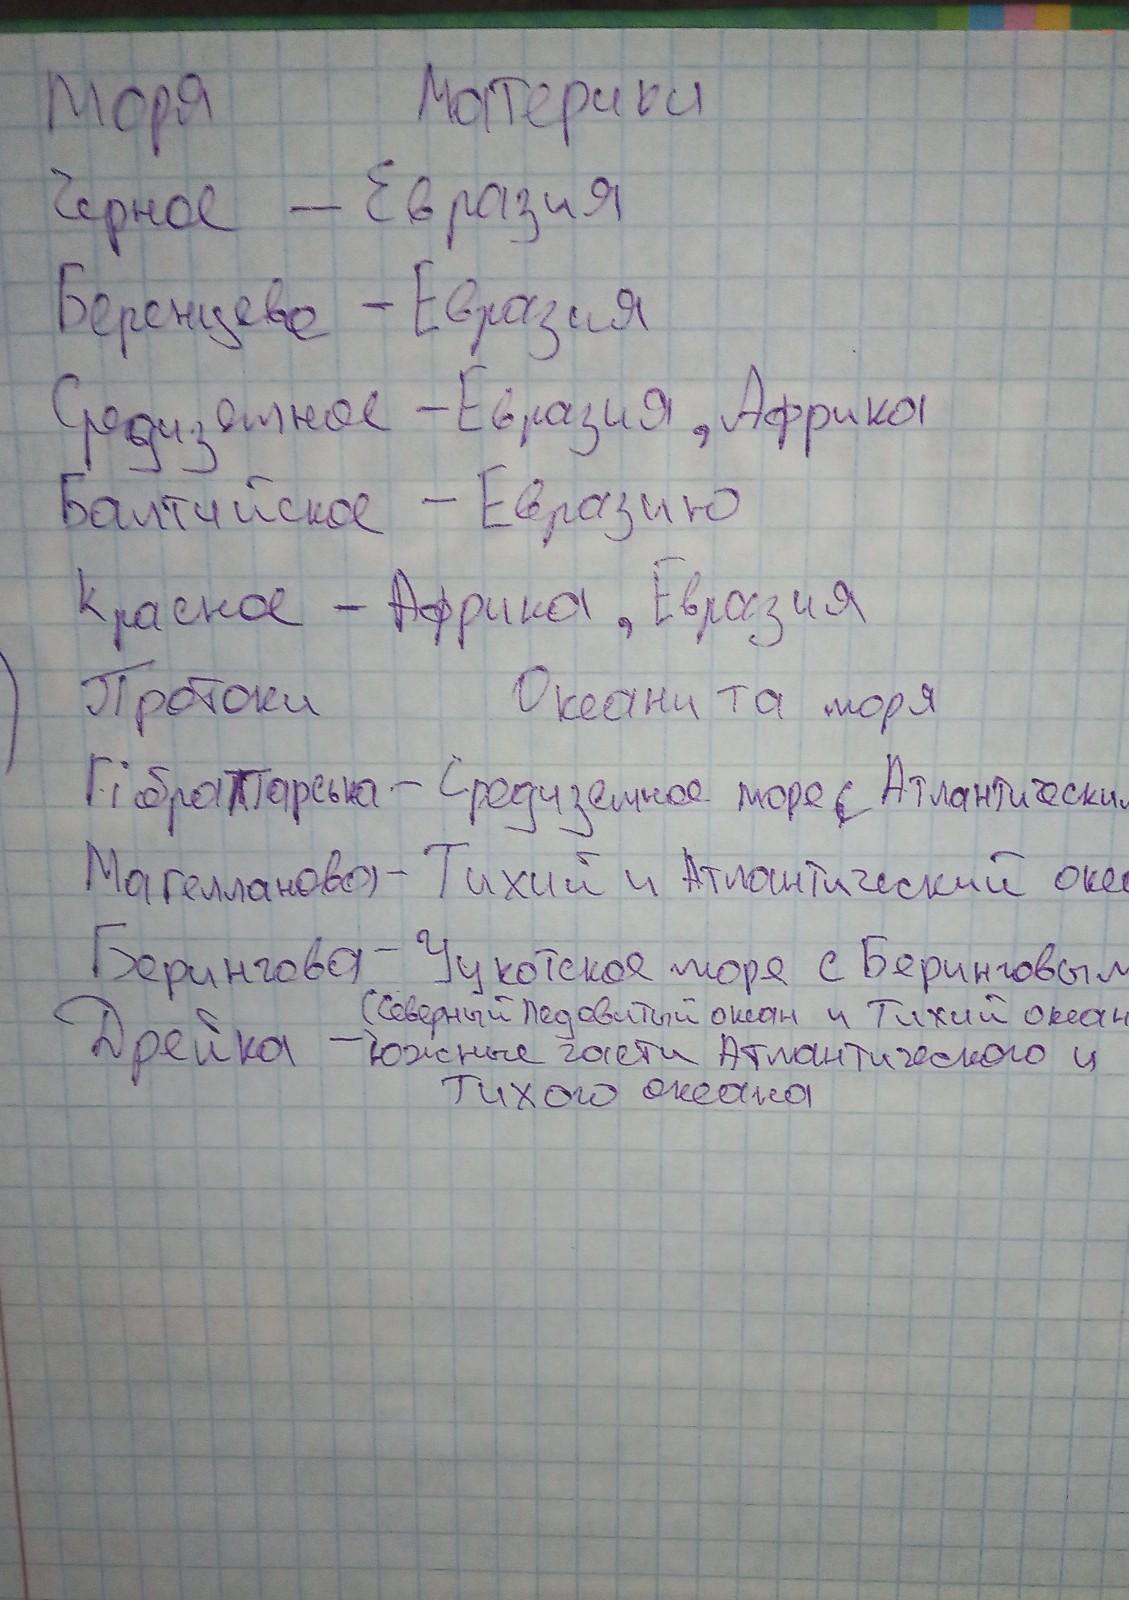 Моря Материки
Черное — Евразия
Беренцево - Евразия
Средиземное - Евразия, Африка
Балтийское - Евразию
Красное - Африка, Евразия
Протоки Океани та моря
Гібралтарська - Средиземное море с Атлантическим
Магелланова - Тихий и Атлантический океа
Берингова - Чукотское море с Беринговым
(Северный Ледовитый океан и Тихий океан
Дрейка - южные части Атлантического и
Тихого океана